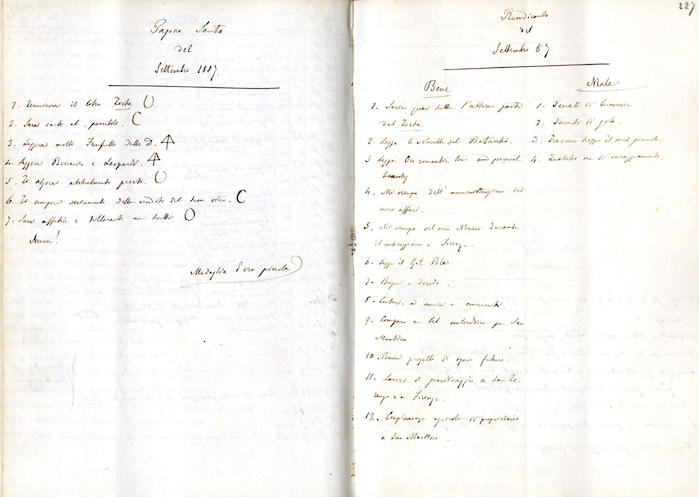 Pagina Santa
del
Settembre 1887.
1. Terminare il libro Testa
2. Sarai casto il possibile.
3. Leggerai molti Fanfulla della D.
4. Leggerai Boccaccio e Leopardi.
5. Ti alzerai abitualmente presto.
6. Ti occuperai seriamente della vendita del vino
7. Sarai affabile e tollerante con tutti
Amen!
Medaglia d'oro piccola
227
Rendiconto
del
Settembre 87
Bene
1. Scrivo quasi tutta l'ultima parte
del Testa
2. Leggo le Novelle del Batacchi.
3 Leggo. On romantic love and personal
beauty
4. Mi occupo dell'amministrazione dei
miei affari.
5. Mi occupo del mio Museo durante
il mio soggiorno a Firenze.
6. Leggo il Gil Blas.
7. Bagni e docce.
8. Lettere ad amici e conoscenti.
9. Compero un bel per San
Martino
10. Buoni progetti di opere future.
11. Lavori di giardinaggio a San Te-
renzo e a Firenze.
12. agricole di proprietario
a San Martino.
Male
1. Peccati di lussuria
2. Peccati di gola.
3. Trascuro troppo il mio giornale.
4. Qualche ora di scoraggiamento.